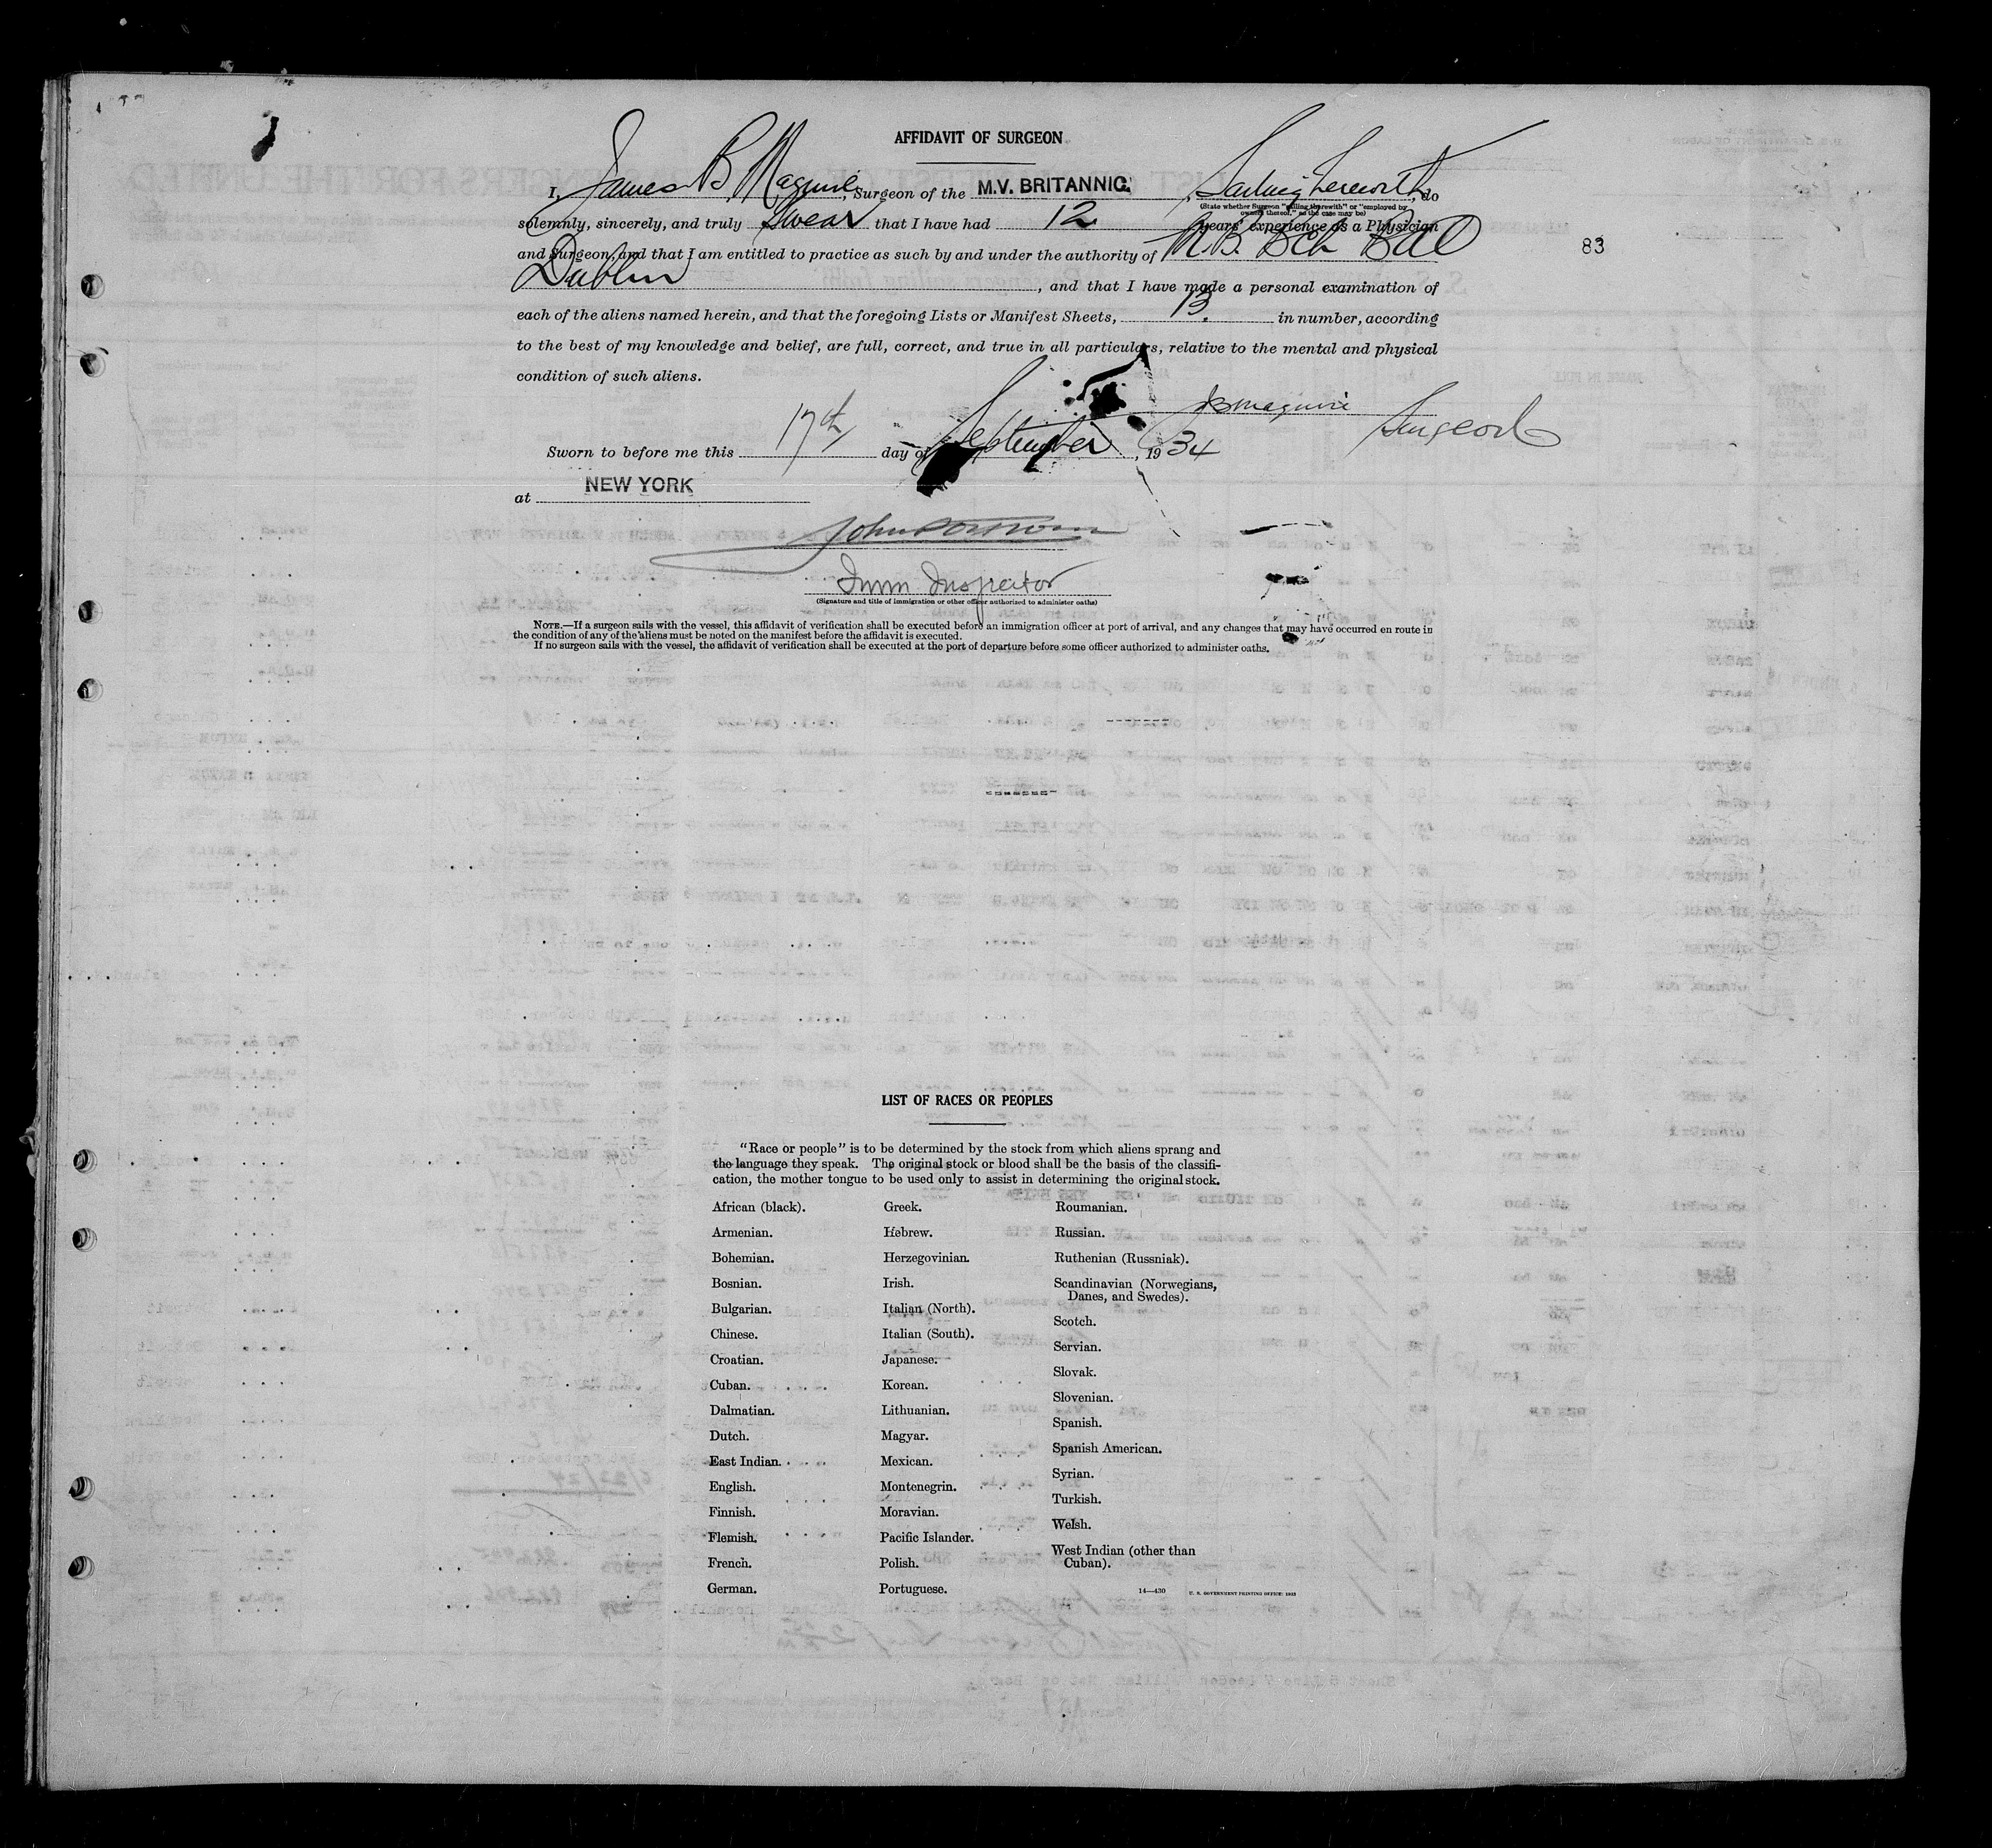 AFFIDAVIT OF SURGEON
I, James B Maguire, Surgeon of the M.V. BRITANNIC. , Sailing therewith, do
(State whether Surgeon "sailing therewith" or "employed by owners thereof," as the case may be)
solemnly, sincerely, and truly Swear that I have had 12 years' experience as a Physician
and Surgeon, and that I am entitled to practice as such by and under the authority of M.B. Bch
83
Dublin , and that I have made a personal examination of
each of the aliens named herein, and that the foregoing Lists or Manifest Sheets, 13. in number, according
to the best of my knowledge and belief, are full, correct, and true in all particulars, relative to the mental and physical
condition of such aliens.
JB Maguire Surgeon
Sworn to before me this 17th day of September , 1934
at NEW YORK
Imm Inspector
(Signature and title of immigration or other officer authorized to administer oaths)
NOTE.—If a surgeon sails with the vessel, this affidavit of verification shall be executed before an immigration officer at port of arrival, and any changes that may have occurred en route in
the condition of any of the aliens must be noted on the manifest before the affidavit is executed.
If no surgeon sails with the vessel, the affidavit of verification shall be executed at the port of departure before some officer authorized to administer oaths.
LIST OF RACES OR PEOPLES
"Race or people" is to be determined by the stock from which aliens sprang and
the language they speak. The original stock or blood shall be the basis of the classifi-
cation, the mother tongue to be used only to assist in determining the original stock.
African (black).
Armenian.
Bohemian.
Bosnian.
Bulgarian.
Chinese.
Croatian.
Cuban.
Dalmatian.
Dutch.
East Indian.
English.
Finnish.
Flemish.
French.
German.
Greek.
Hebrew.
Herzegovinian.
Irish.
Italian (North).
Italian (South).
Japanese.
Korean.
Lithuanian.
Magyar.
Mexican.
Montenegrin.
Moravian.
Pacific Islander.
Polish.
Portuguese.
Roumanian.
Russian.
Ruthenian (Russniak).
Scandinavian (Norwegians,
Danes, and Swedes).
Scotch.
Servian.
Slovak.
Slovenian.
Spanish.
Spanish American.
Syrian.
Turkish.
Welsh.
West Indian (other than
Cuban).
14—430 U. S. GOVERNMENT PRINTING OFFICE: 1932